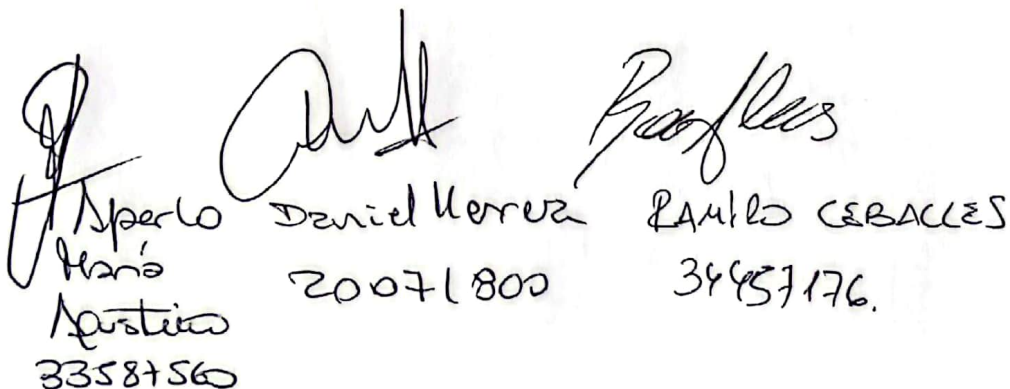 Aperlo
María
Agustina
33587560
Daniel Herrera
20071800
RAMIRO CEBALLES
34457176.